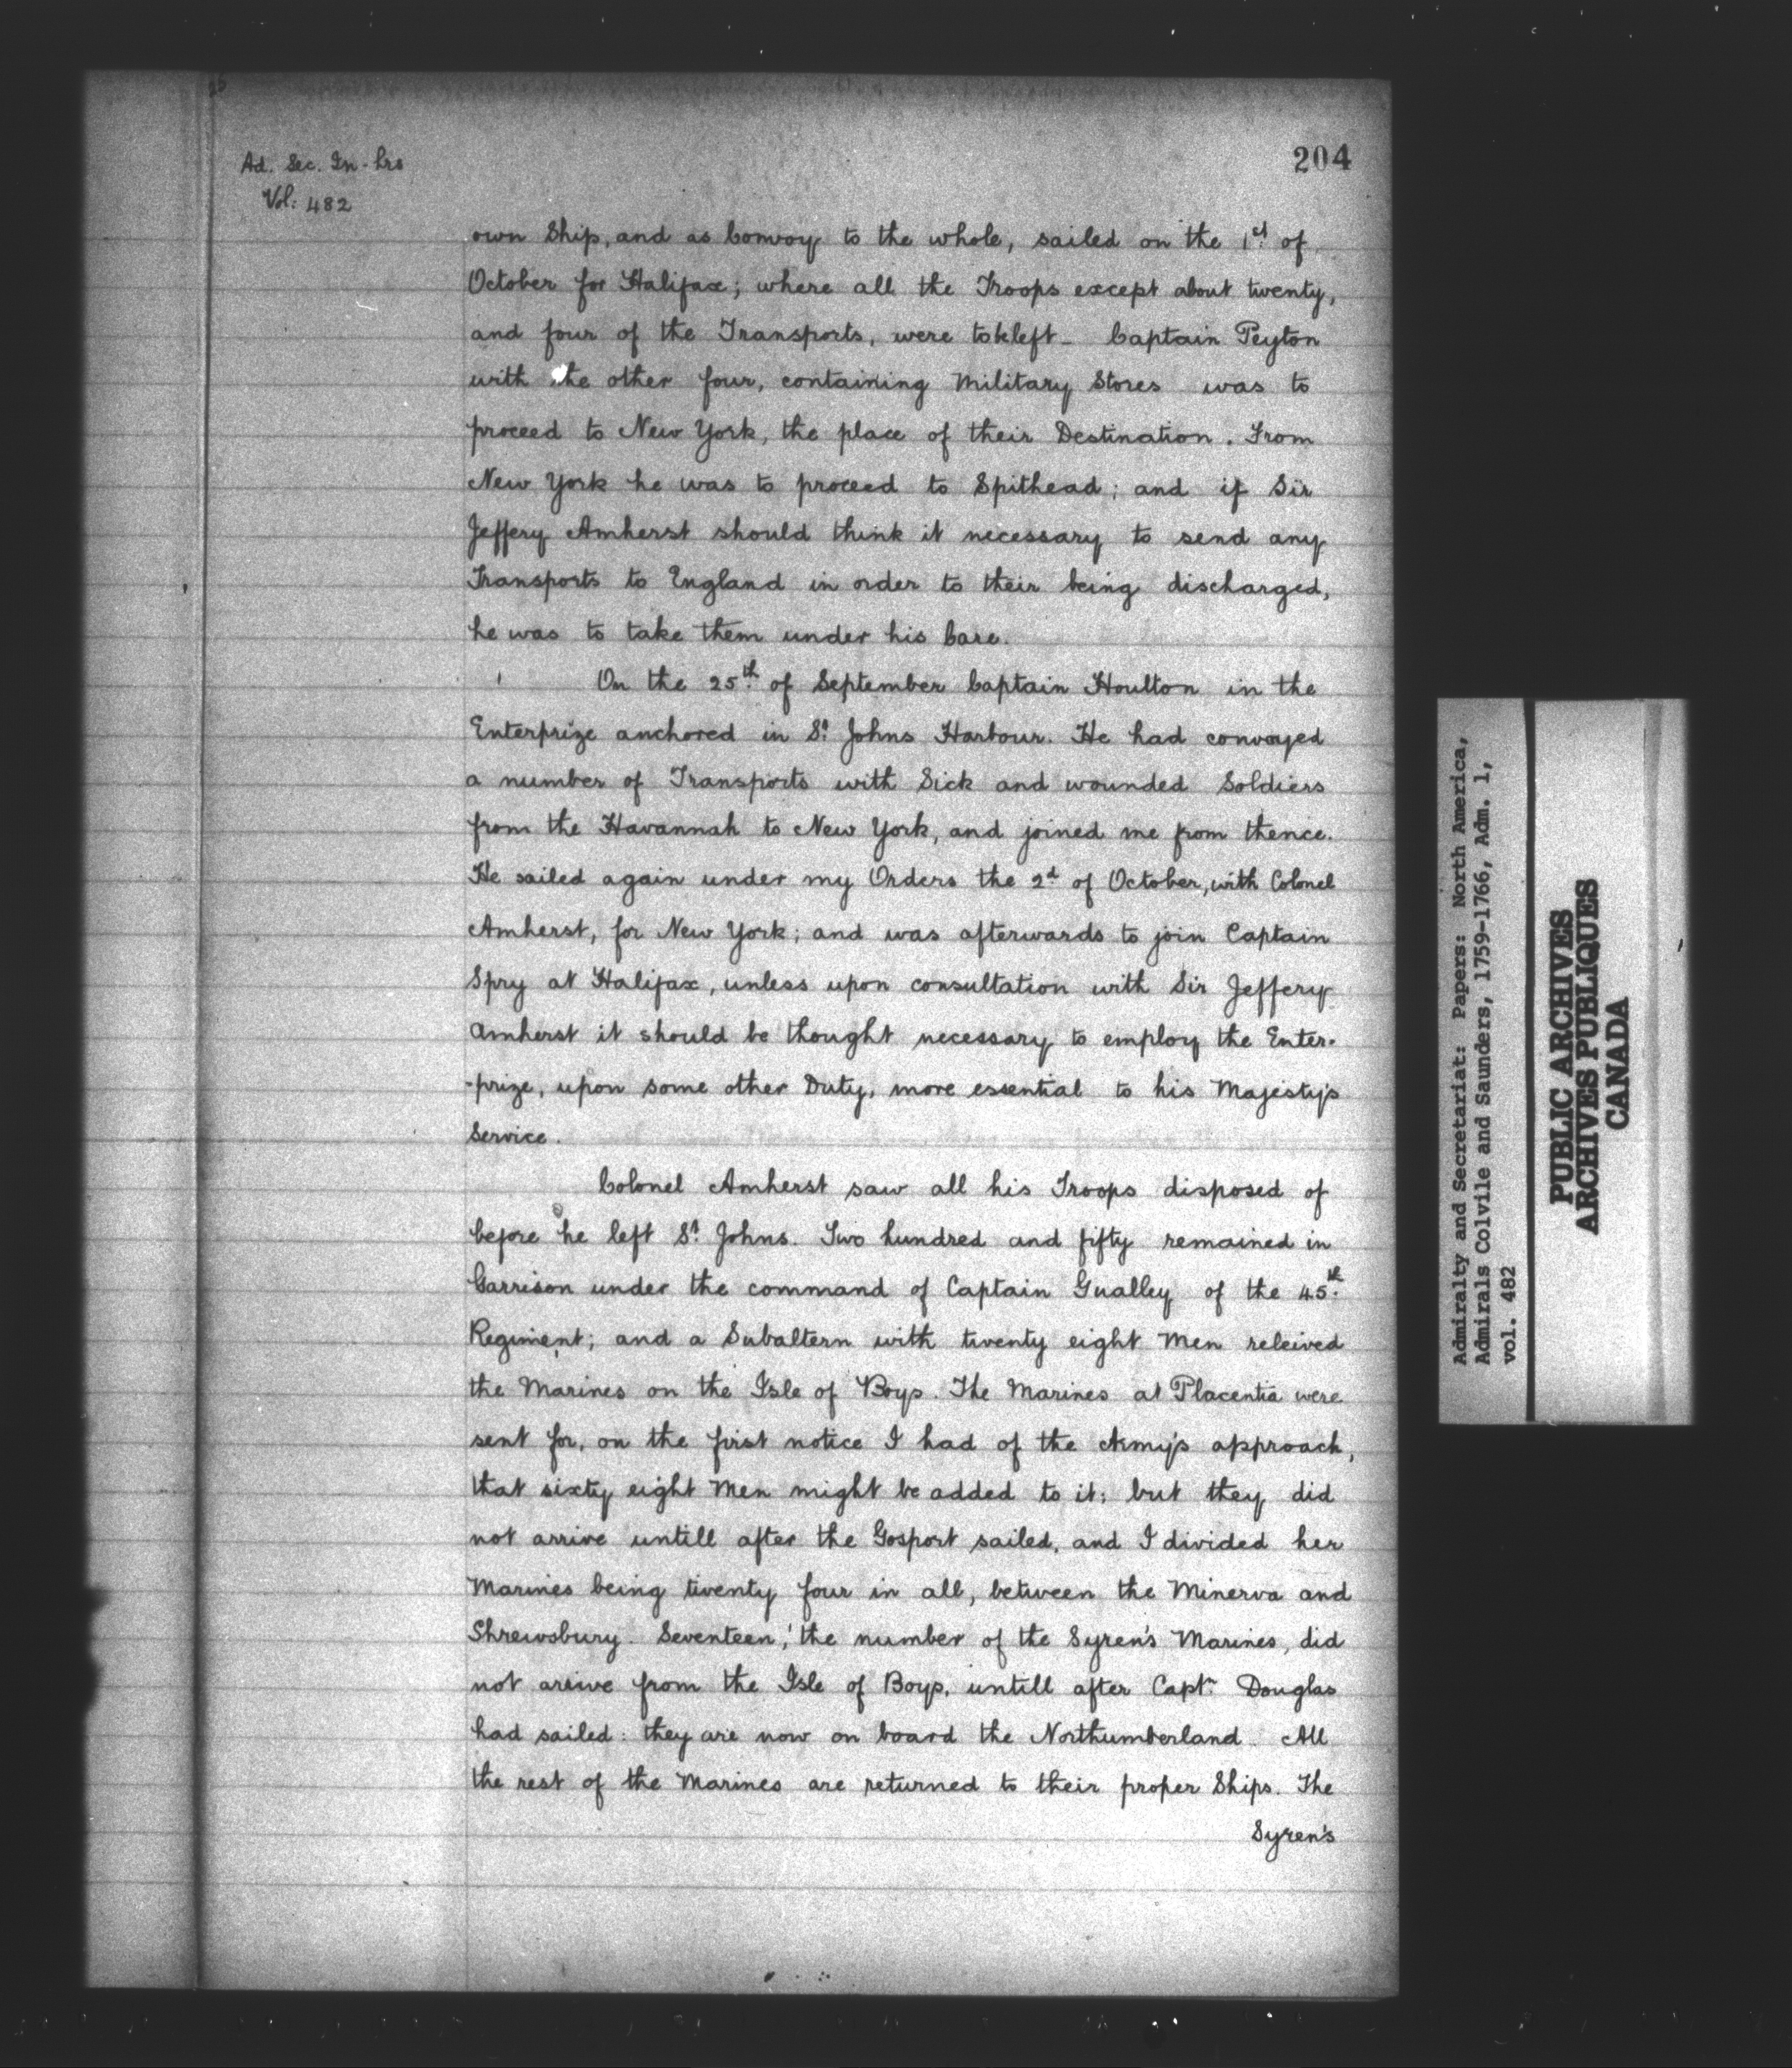 Ad. Sec. In-Lrs
Vol: 482
204
own Ship, and as Convoy to the whole, sailed on the 1st of
October for Halifax; where all the Troops except about twenty,
and four of the Transports, were to be left_ Captain Peyton
with the other four, containing Military Stores was to
proceed to New York, the place of their Destination. From
New York he was to proceed to Spithead; and if Sir
Jeffery Amherst should think it necessary to send any
Transports to England in order to their being discharged,
he was to take them under his Care.
On the 25th of September Captain Houlton in the
Enterprize anchored in St Johns Harbour. He had convoyed
a number of Transports with Sick and wounded Soldiers
from the Havannah to New York, and joined me from thence.
He sailed again under my Orders the 2d of October, with Colonel
Amherst, for New York; and was afterwards to join Captain
Spry at Halifax, unless upon consultation with Sir Jeffery
Amherst it should be thought necessary to employ the Enter-
-prize, upon some other Duty, more essential to his Majesty's
Service.
Colonel Amherst saw all his Troops disposed of
before he left St Johns. Two hundred and fifty remained in
Garrison under the command of Captain Gualley of the 45th
Regiment; and a Subaltern with twenty eight Men releived
the Marines on the Isle of Boys. The Marines at Placentia were
sent for, on the first notice I had of the Army's approach,
that sixty eight Men might be added to it; but they did
not arrive untill after the Gosport sailed, and I divided her
Marines being twenty four in all, between the Minerva and
Shrewsbury. Seventeen, the number of the Syren's Marines, did
not arrive from the Isle of Boys, untill after Captn Douglas
had sailed: they are now on board the Northumberland. All
the rest of the Marines are returned to their proper Ships. The
Syren's
Admiralty and Secretariat: Papers: North America,
Admirals Colvile and Saunders, 1759-1766, Adm. 1,
vol. 482
PUBLIC ARCHIVES
ARCHIVES PUBLIQUES
CANADA